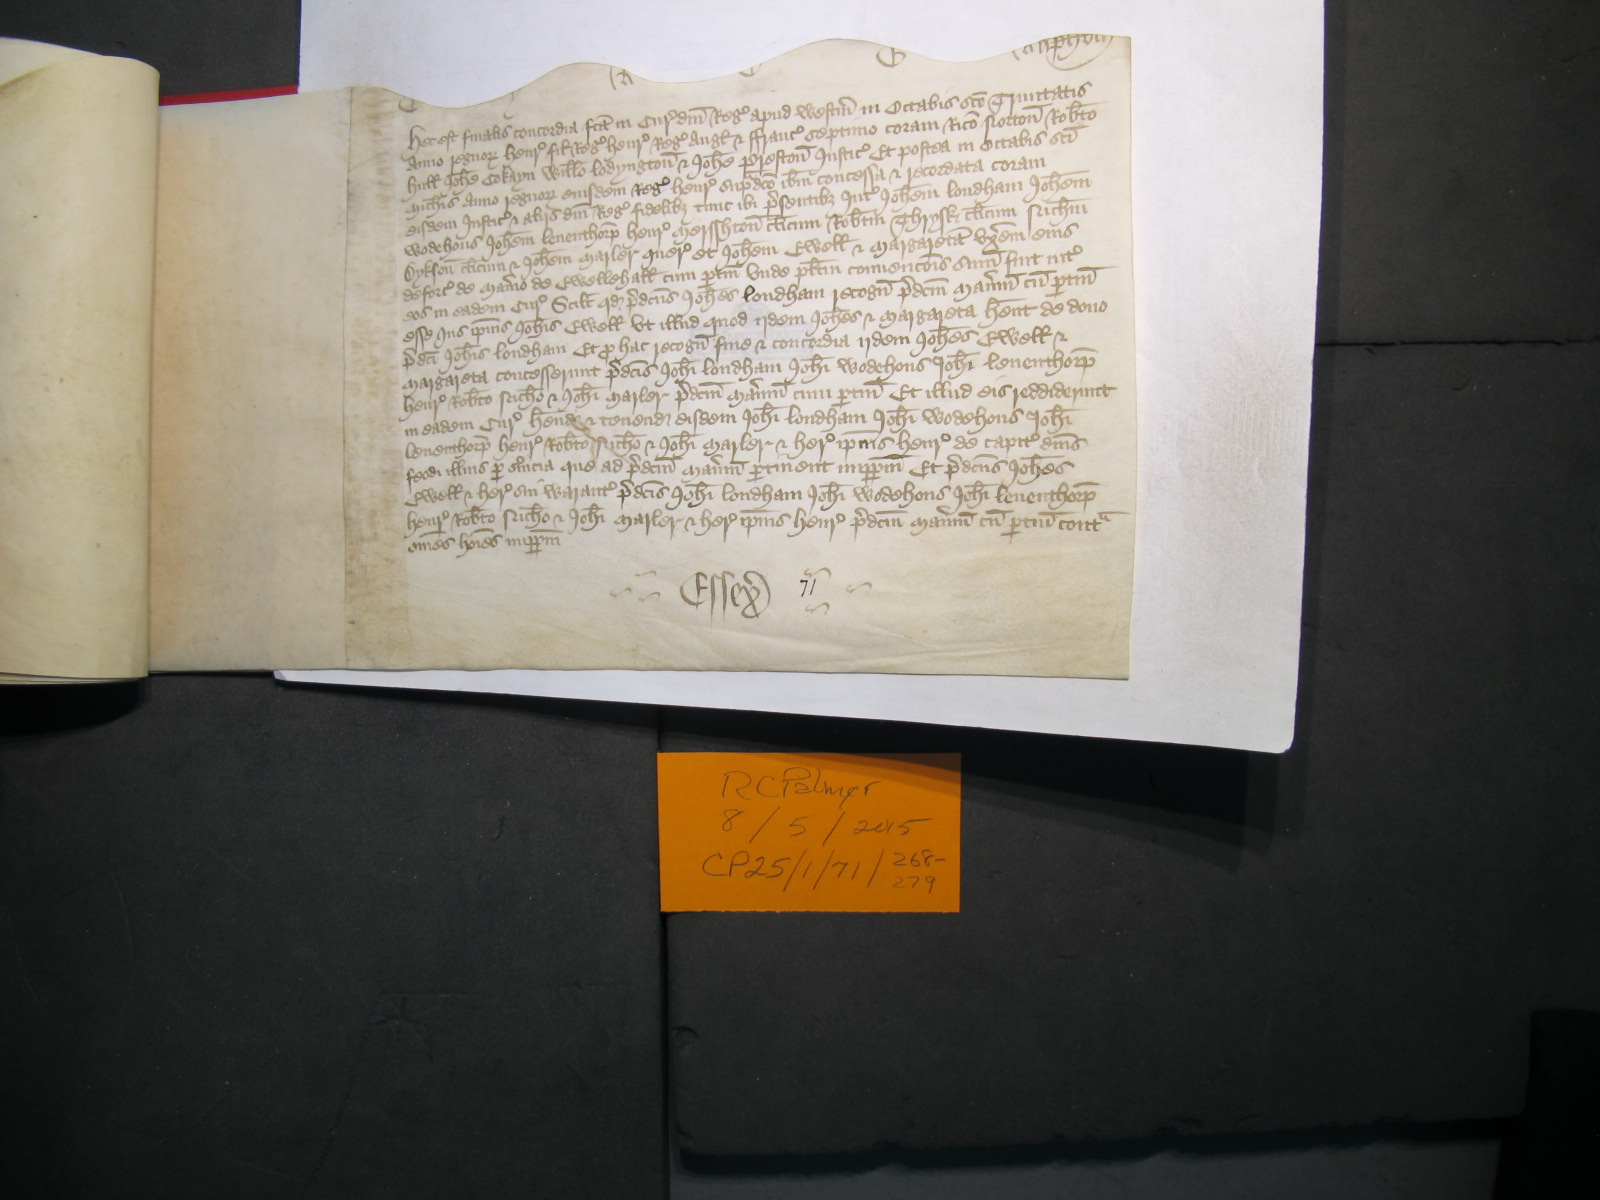 Hec est finalis concordia fc̃a in Cur̃ dñi Reg̃ apud Westm̃ in Octabis sc̃e Trinitatis
Anno regnor̃ Henr̃ fil̃ Reg̃ Henr̃ Reg̃ Angl̃ & ffranc̃ septimo coram Ric̃o Norton̄ Rob̃to
Hull Joh̃e Cokayn Will̃o Lodyngton̄ & Joh̃e Preston̄ Justic̃ Et postea in Octabis sc̃i
Mich̃is Anno regnor̃ eiusdem Reg̃ Henr̃ sup̃dc̃o ib̃m concessa & recordata coram
eisdem Justic̃ & alijs dñi Reg̃ fidelib; tunc ibi p̃sentib; Int̃ Joh̃em Londham Joh̃em
Wodehous Joh̃em Leuenthorp̃ Henr̃ Mersshton̄ cl̃icum Rob̃tm Thrysk̃ cl̃icum Nich̃m
Dykson̄ cl̃icum & Joh̃em Marler quer̃ et Joh̃em Ewell̃ & Margaretã vx̃em eius
deforc̃ de Mañio de Ewellehall̃ cum ptiñ Vnde pl̃itm conuenc̃ois sum̃ fuit int̃
eos in eadem Cur̃ Scilt̃ qd̃ p̃dc̃us Joh̃es Londham recogñ p̃dc̃m Mañium cũ ptiñ
esse Jus ip̃ius Joh̃is Ewell̃ Vt illud quod ijdem Joh̃es & Margareta hent̃ de dono
p̃dc̃i Joh̃is Londham Et p hac recogñ fine & concordia ijdem Joh̃es Ewell̃ &
Margareta concesserunt p̃dc̃is Joh̃i Londham Joh̃i Wodehous Joh̃i Leuenthorp̃
Henr̃ Rob̃to Nich̃o & Joh̃i Marler p̃dc̃m Mañium cum ptiñ Et illud eis reddiderunt
in eadem Cur̃ Hend̃ & tenend̃ eisdem Joh̃i Londham Joh̃i Wodehous Joh̃i
Leuenthorp̃ Henr̃ Rob̃to Nich̃o & Joh̃i Marler & her̃ ip̃ius Henr̃ de capit̃ dñis
feodi illius p seruicia que ad p̃dc̃m Mañium ptinent imppm̃ Et p̃dc̃us Joh̃es
Ewell̃ & her̃ sui Warant̃ p̃dc̃is Joh̃i Londham Joh̃i Wodehous Joh̃i Leuenthorp̃
Henr̃ Rob̃to Nich̃o & Joh̃i Marler & her̃ ip̃ius Henr̃ p̃dc̃m Mañium cũ ptiñ contᵃ
om̃es ho͠ies imppm̃
Essex̃ 71
RCPalmer
8 / 5 / 2015
CP25/1/71/268-
279